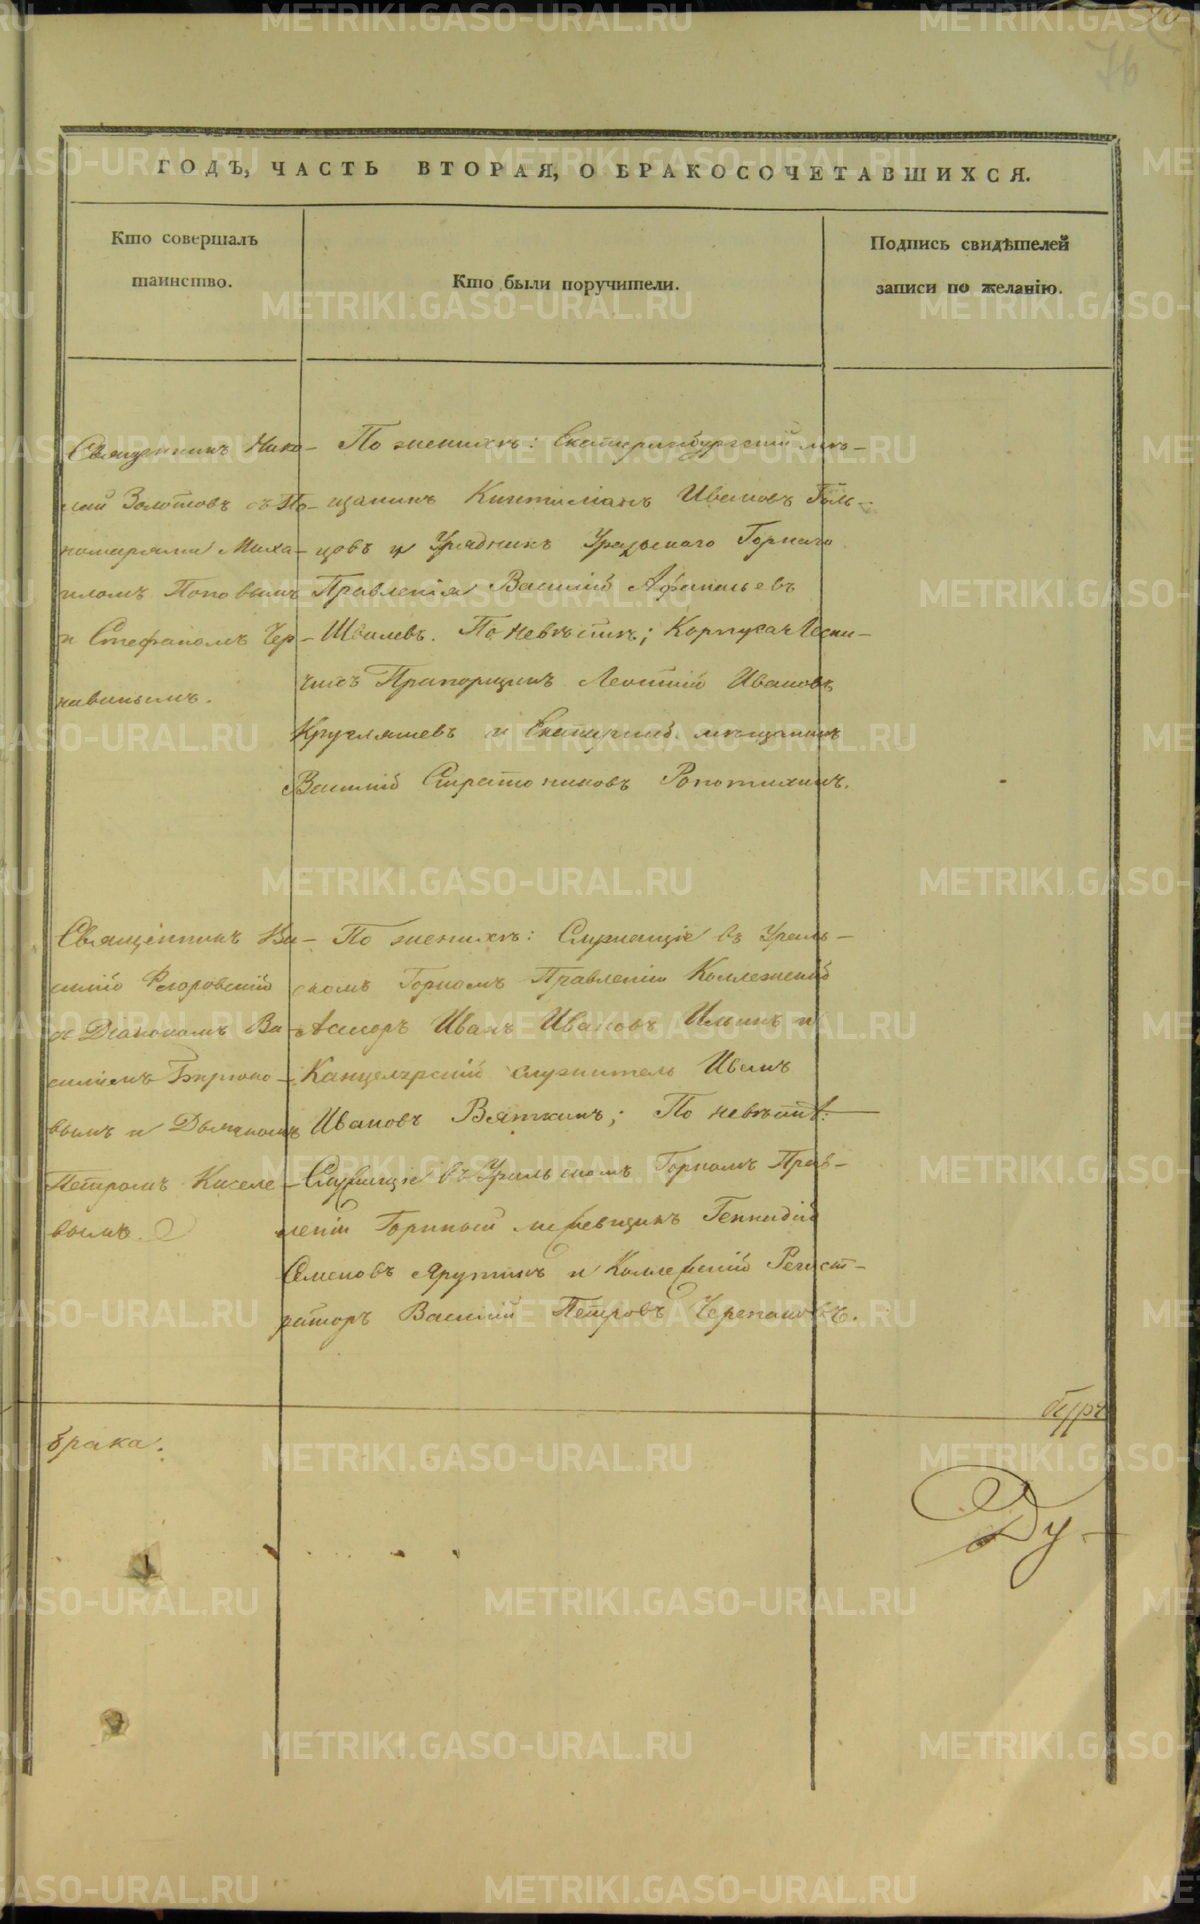 76
ГОДЪ, ЧАСТЬ ВТОРАЯ, О БРАКОСОЧЕТАВШИХСЯ.
Кто совершалъ
таинство.
Кто были поручители.
Подпись свидѣтелей
записи по желанію.
Священникъ Нико-
лай Золотовъ съ По-
номарями Миха-
иломъ Поповымъ
и Стефаномъ Чер-
навинымъ.
По женихѣ: Екатеринбургскій мѣ-
щанинъ Кинтиліанъ Ивановъ Голь-
цовъ и Урядникъ Уральскаго Горнаго
Правленія Василій Афанасьевъ
Швалевъ. По невѣстѣ; Корпуса Лѣсни-
чихъ Прапорщикъ Леонтій Ивановъ
Кругляшевъ и Екатеринб. мѣщанинъ
Василій Стратониковъ
Священникъ Ва-
силій Флоровскій
съ Діакономъ Ва-
силіемъ Бирюко-
вымъ и Дьячкомъ
Петромъ Киселе-
вымъ.
По женихѣ: Служащіе въ Ураль-
скомъ Горномъ Правленіи Коллежскій
Асессоръ Иванъ Ивановъ Ильинъ и
Канцелярскій служитель Иванъ
Ивановъ Вяткинъ; По невѣстѣ:
Служащіе въ Уральскомъ Горномъ Прав-
леніи Горнный Геннадій
Семеновъ Ярутинъ и Коллежскій Регист-
раторъ Василій Петровъ Черепановъ.
брака.
Ду-
METRIKI.GASO-URAL.RU